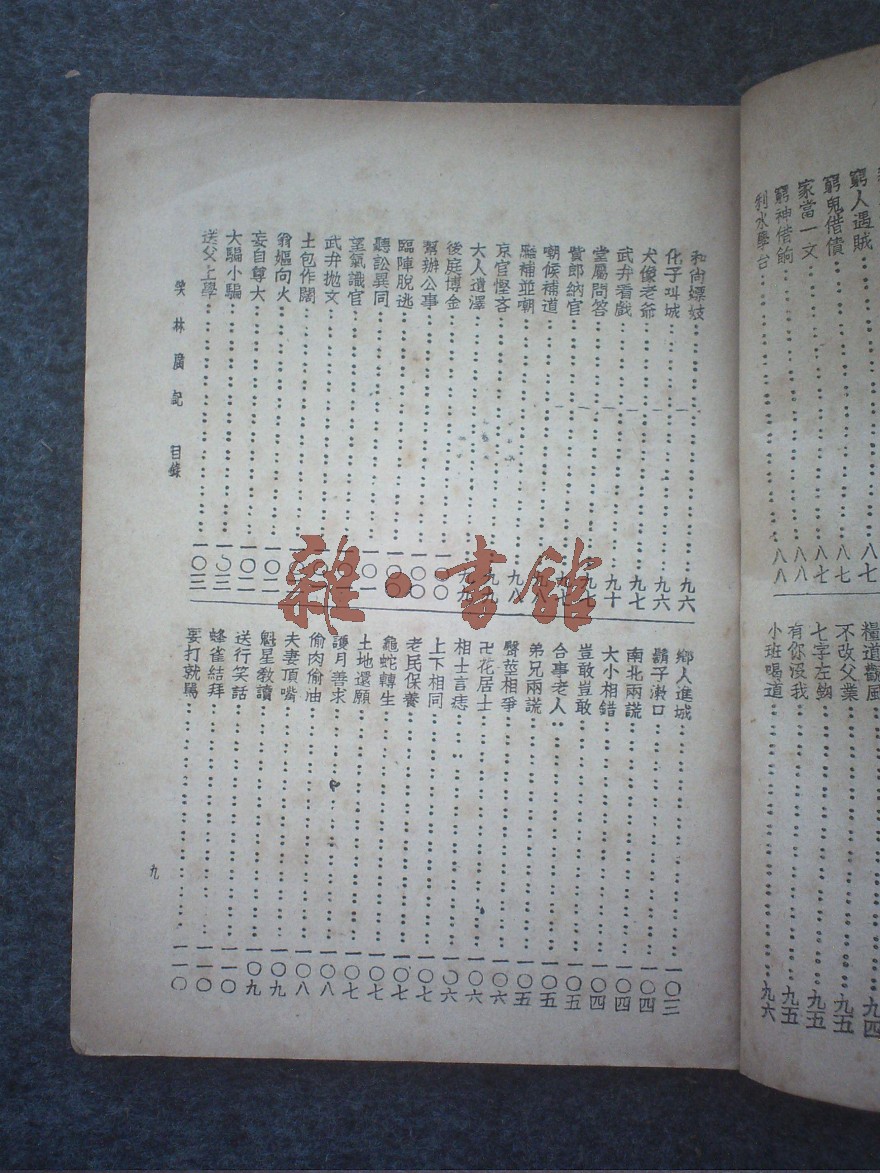 窮人遇賊 八七
窮鬼借債 八七
家當一文 八七
窮神借餉 八八
刹水學台 八八
糧道觀風 九四
不改父業 九五
七字左鈎 九五
有你沒我 九五
小班喝道 九六
和尚嫖妓 九六
化子叫城 九六
犬像老爺 九七
武弁看戲 九七
堂屬問答 九十
貲郎納官 九七
嘲候補道 九七
黜補並嘲 九八
京官慳吝 九八
大人遺澤 九九
後庭博金 九九
幫辦公事 一〇〇
臨陣脫逃 一〇〇
聽訟異同 一〇〇
望氣識官
武弁拋文
土包作闊
翁嫗向火 一〇二
妄自尊大 一〇二
大騙小騙 一〇三
送父上學 一〇三
鄉人進城 一〇三
鬍子漱口 一〇四
南北兩謊 一〇四
大小相錯 一〇四
豈敢豈敢 一〇五
合事老人 一〇五
弟兄兩謊 一〇五
臀莖相爭 一〇六
卍花居士 一〇六
相士言痣 一〇六
上下相同 一〇七
老民保養 一〇七
龜蛇轉生 一〇七
土地還願 一〇七
護月善求 一〇八
偷肉偷油 一〇八
夫妻頂嘴 一〇九
魁星教讀 一〇九
送行笑話 一一〇
蜂雀結拜 一一〇
要打就罵 一一〇
笑林廣記 目錄
九
雜·書館